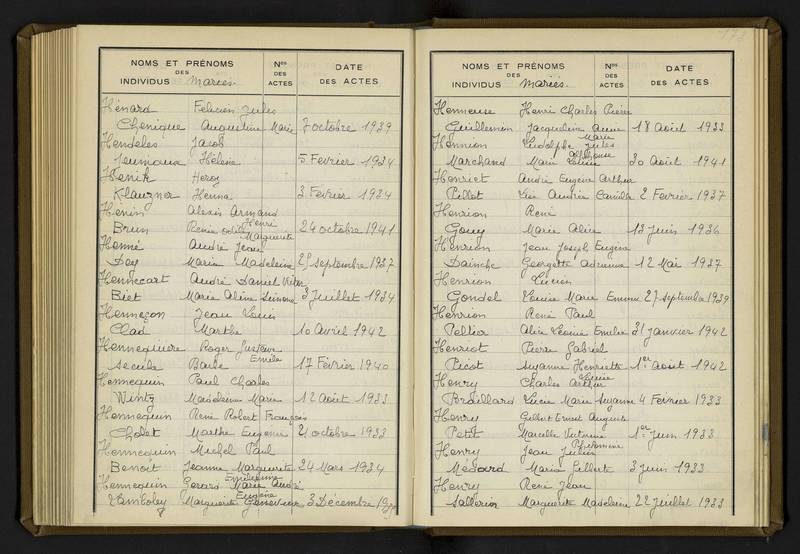 NOMS ET PRÉNOMS
DES
INDIVIDUS Mariés
Nos
DES
ACTES
DATE
DES ACTES
Hénard Felicien Jules
Chenique Augustine Marie 7 octobre 1939
Hendeles Jacob
Jeunioux Hélène 5 Février 1934
Henik Hersz
Klauzner Henna 3 Février 1934
Henin Alexis Armand
Henri
Brun Renée Odile Marguerite 24 octobre 1941
Henné André Jean
Dog Maria Madeleine 25 septembre 1937
Hennecart André Daniel Victor
Biet Marie Aline Simone 3 Juillet 1934
Henneçon Jean Louis
Clad Marthe 10 Avril 1942
Hennequiere Roger Gustave
Emile
Barbe 17 Février 1940
Hennequin Paul Charles
Wintz Madeleine Marie 12 Août 1933
Hennequin René Robert François
Cholet Marthe Eugenie 21 octobre 1933
Hennequin Michel Paul
Benoit Jeanne Marguerite 24 Mars 1934
Emilienne
Hennequin Gerard Marie André
Eugène
Marguerite Genevieve 3 Décembre
NOMS ET PRÉNOMS
DES
INDIVIDUS Mariés.
Nos
DES
ACTES
DATE
DES ACTES
Henneuse Henri Charles Pierre
Guillemon Jacqueline Anne Marie 18 Août 1933
Henrion Rodolphe Jules
Alphonse
Marchand Marie Louise 30 Août 1941
Henriet André Eugène Arthur
Pillot Andrée Camille 2 Février 1937
Henrion René
Gouy Marie Alice 13 Juin 1936
Henrion Jean Joseph Eugène
Dainche Georgette Adrienne 12 Mai 1937
Henrion Lucien
Gondel Louise Marie Emma 27 septembre 1939
Henrion René Paul
Peltier Alice Léonie Emilie 31 Janvier 1942
Henriot Pierre Gabriel
Picot Suzanne Henriette 1er Août 1942
Louise
Henry Charles Arthur
Braillard Lucie Marie Suzanne 4 Février 1933
Henry Gilbert Ernest Auguste
Petit Marcelle Victorine 1er Juin 1933
Philomène
Henry Jean Julien
Médard Maria Gilberte 3 Juin 1933
Henry René Jean
Sallerin Marguerite Madeleine 22 Juillet 1933